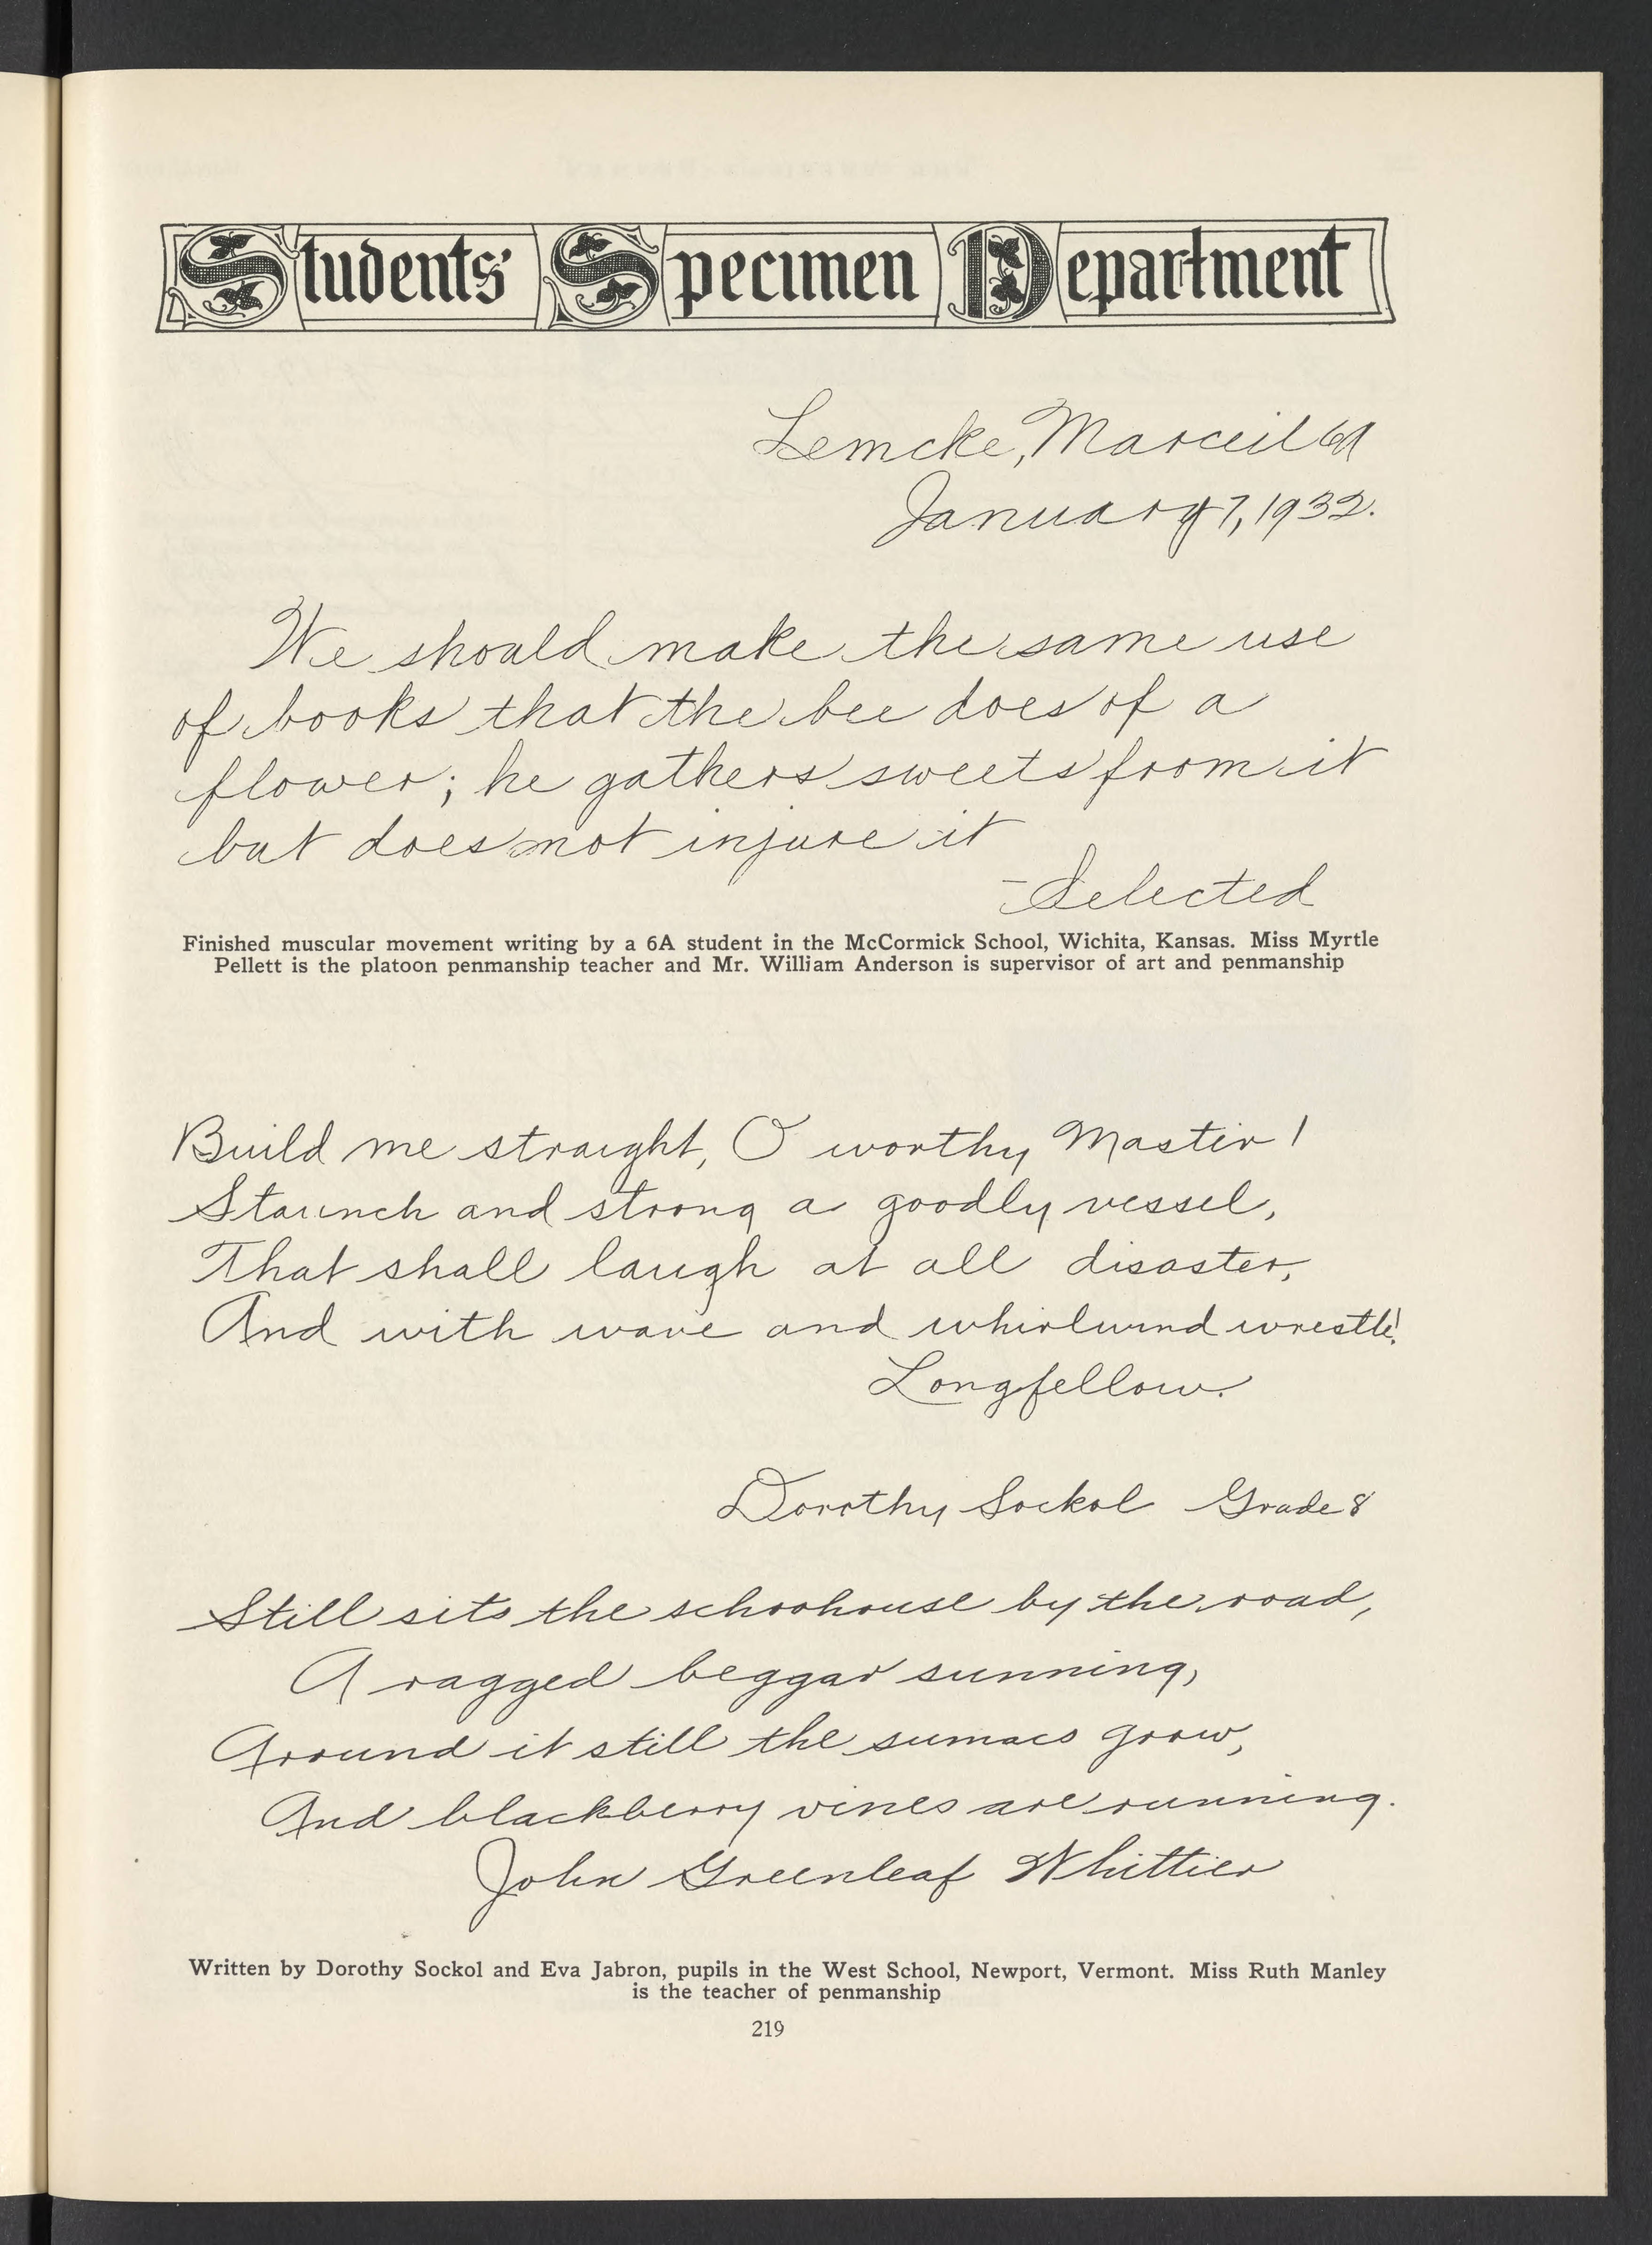 Students' Specimen Department
Lemcke, Marceil 6A
January 7, 1932.
We should make the same use
of books that the bee does of a
flower; he gathers sweets from it
but does not injure it
-Selected
Finished muscular movement writing by a 6A student in the McCormick School, Wichita, Kansas. Miss Myrtle
Pellett is the platoon penmanship teacher and Mr. William Anderson is supervisor of art and penmanship
Build me straight, O worthy Master!
Staunch and strong a goodly vessel,
That shall laugh at all disaster,
And with wave and whirlwind wrestle!
Longfellow.
Dorothy Sockol Grade 8
Still sits the schoohouse by the road,
A ragged beggar sunning,
Around it still the sumacs grow,
And blackberry vines are running.
John Greenleaf Whittier
Written by Dorothy Sockol and Eva Jabron, pupils in the West School, Newport, Vermont. Miss Ruth Manley
is the teacher of penmanship
219